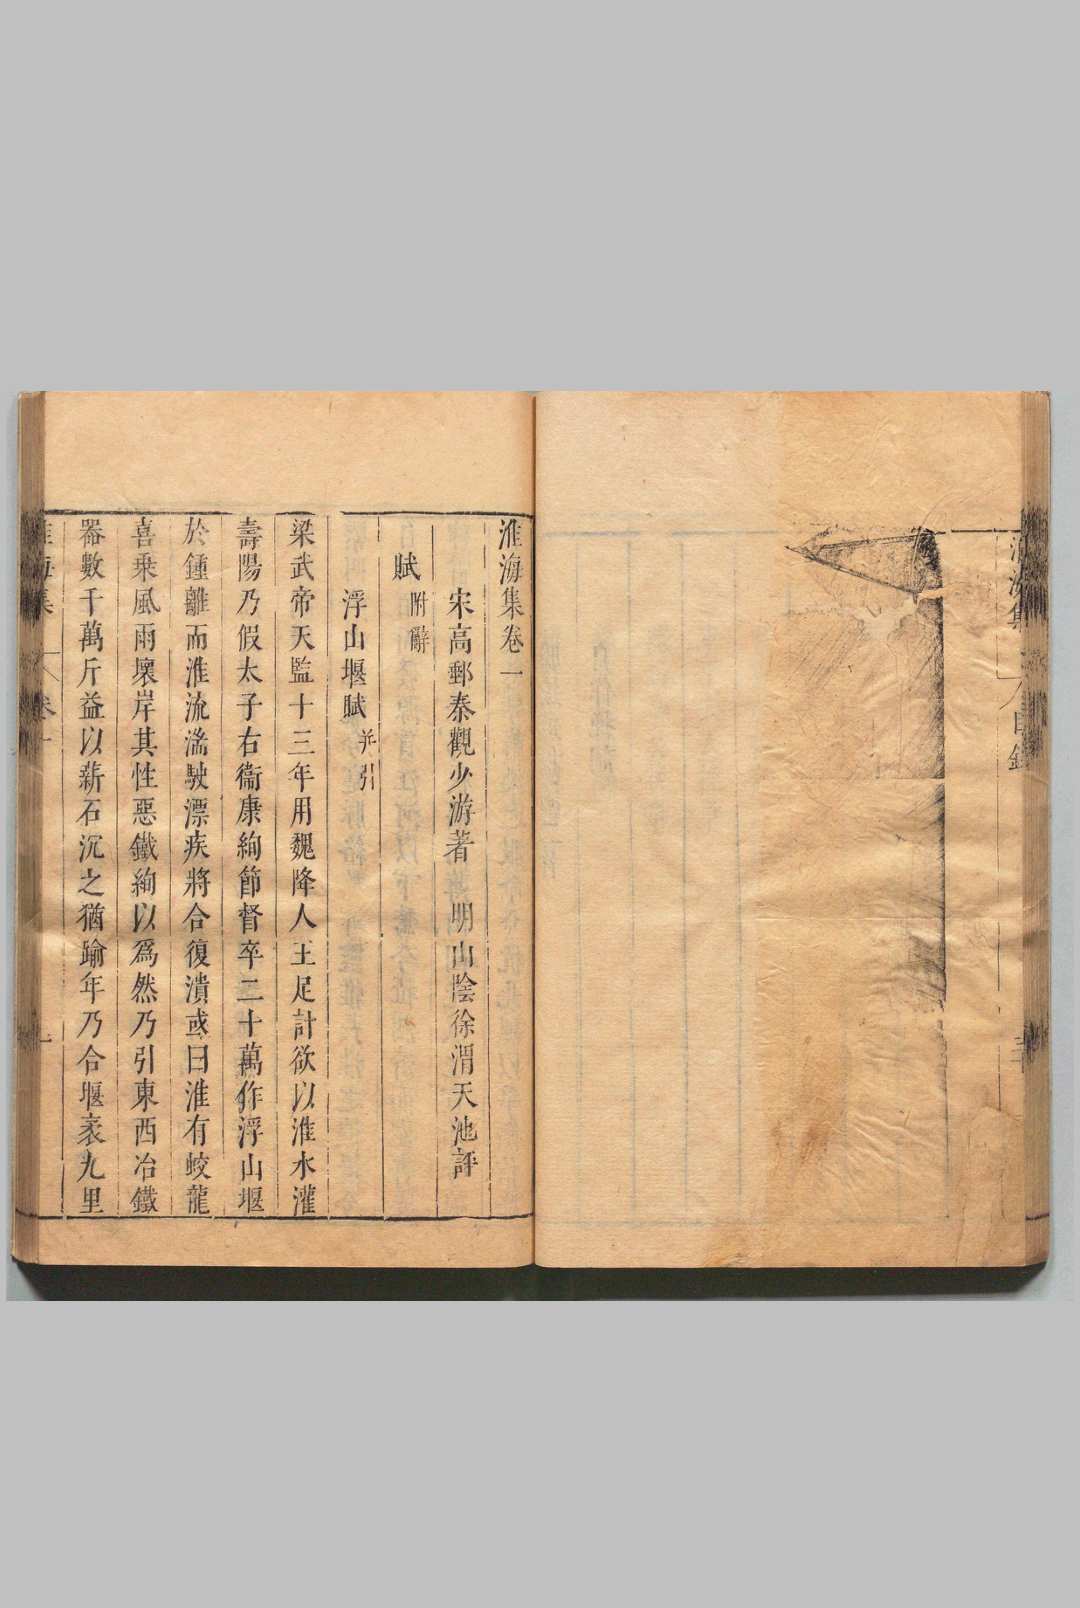 淮海集卷一
宋高郵秦觀少游著 明山陰徐渭天池評
賦 附辭
浮山堰賦 并引
梁武帝天監十三年用魏降人王足計欲以淮水灌
壽陽乃假太子右衞康絢節督卒二十萬作浮山堰
於鍾離而淮流湍駛漂疾將合復潰或曰淮有蛟龍
喜乗風雨壞岸其性惡鐵絢以爲然乃引東西冶鐵
噐數千萬斤益以薪石沉之猶踰年乃合堰袤九里